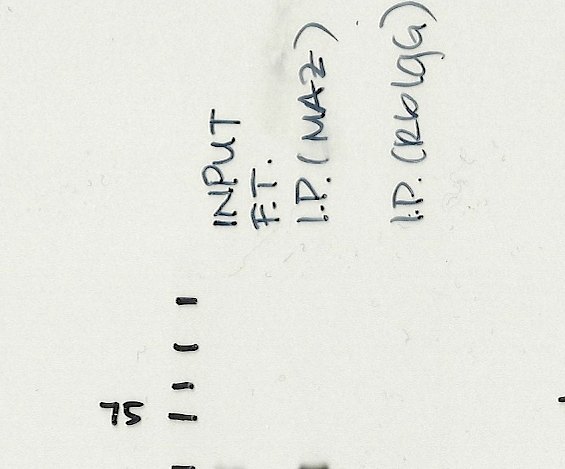 INPUT
F.T.
I.P. (MAZ)
I.P. (RbIgG)
75